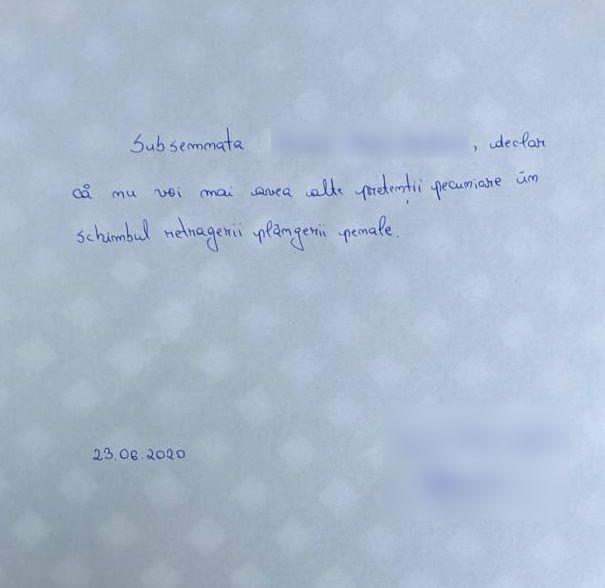 Subsemnata , declar
că nu voi mai avea alte pretenții pecuniare în
schimbul retragerii plângerii penale.
23.06.2020